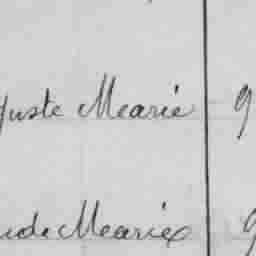 guste Mearié 9
ude Mearié 9